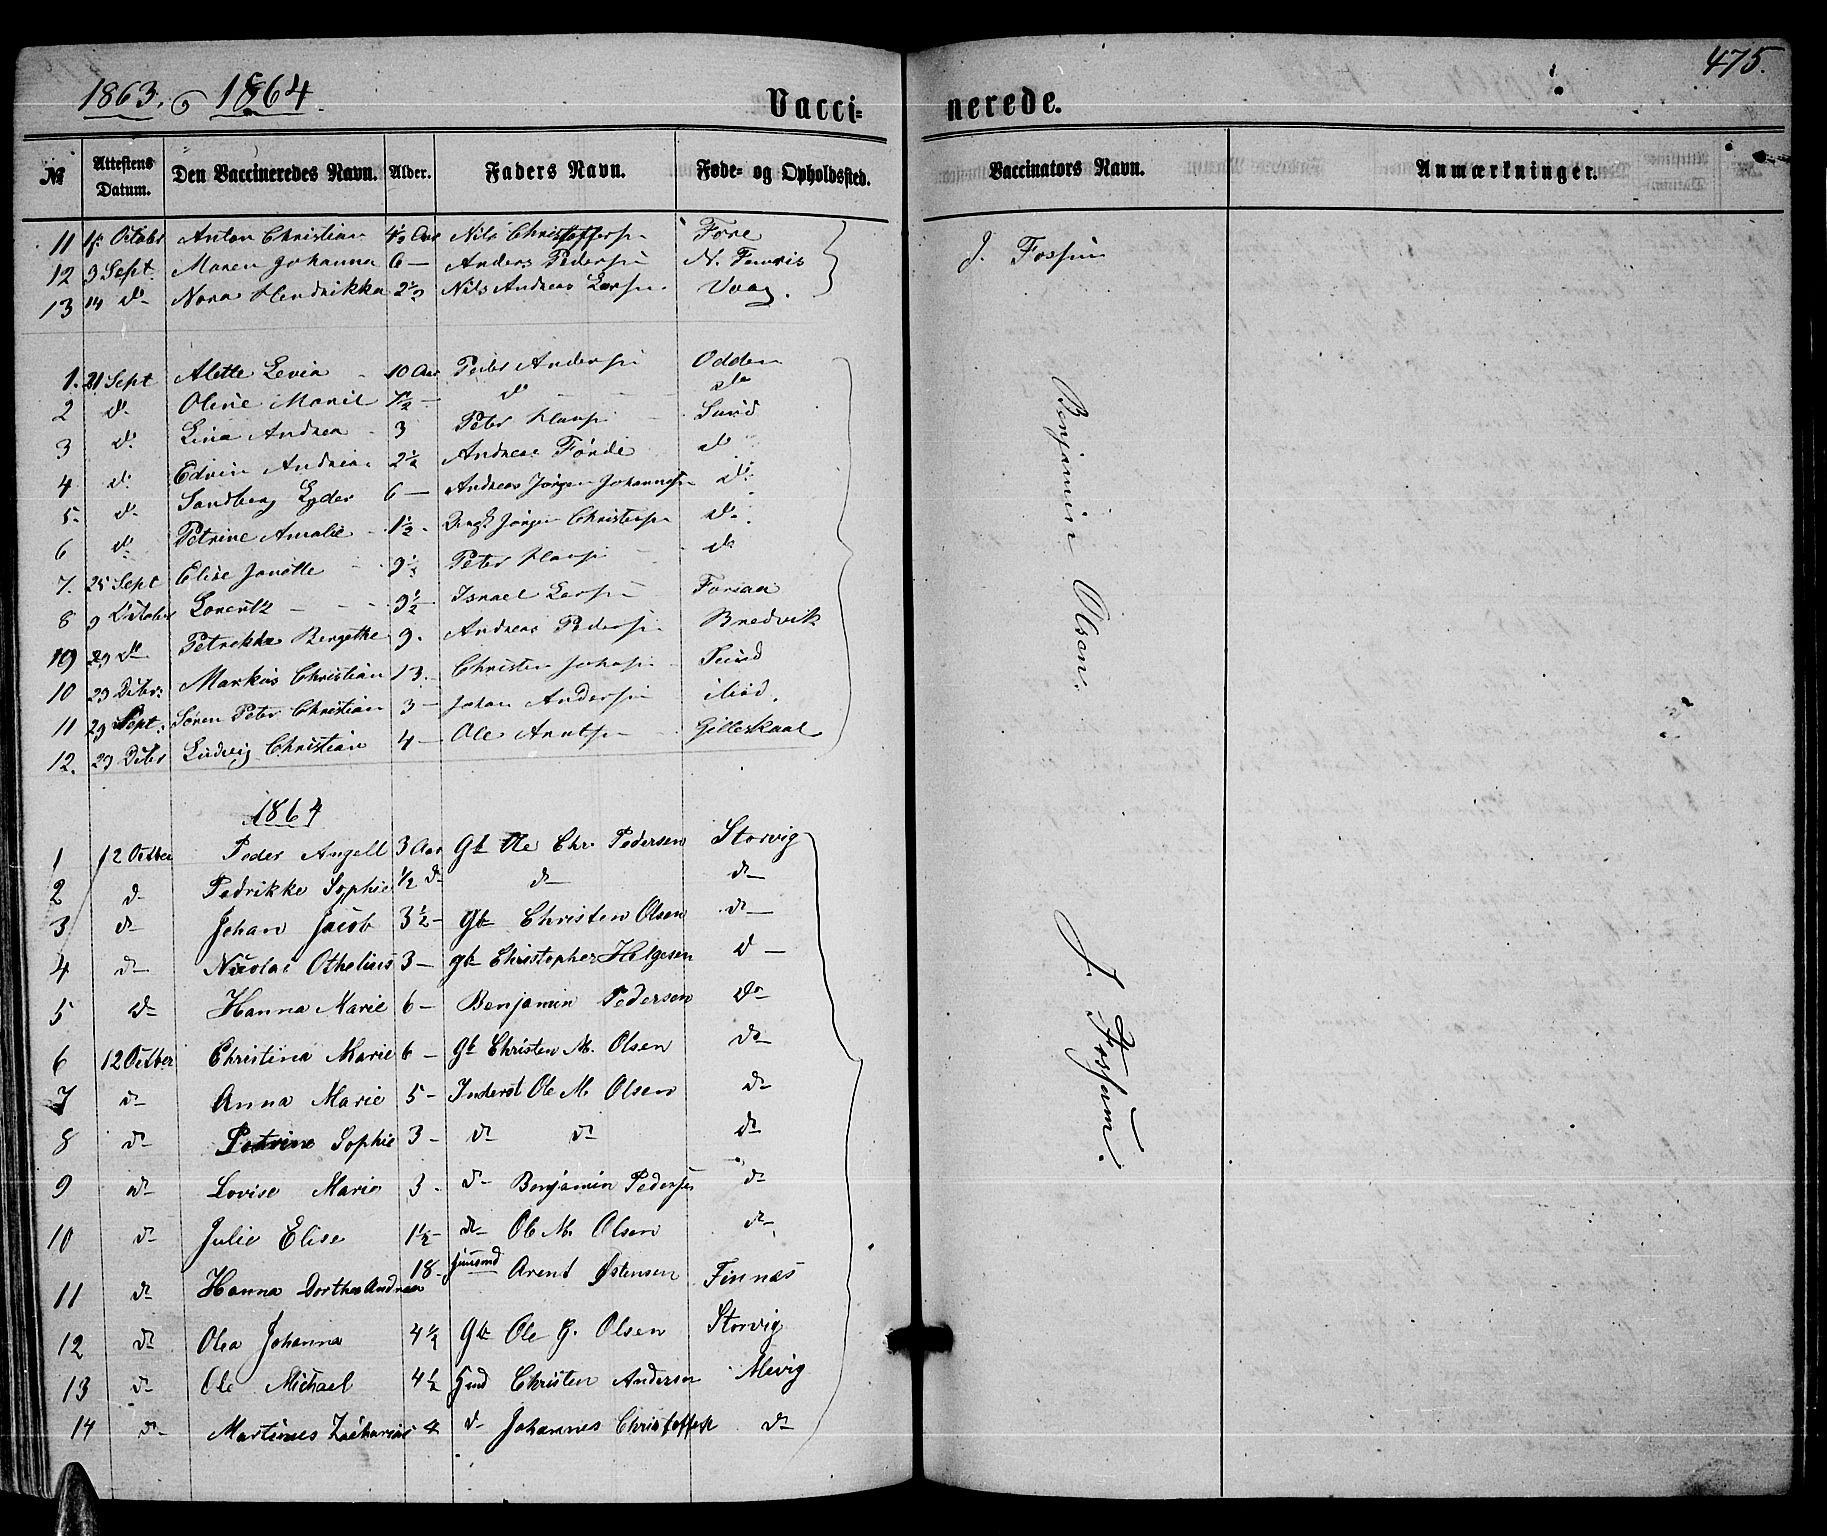 1863 o 1864. Vacci= nerede. 475.
№ Attestens Datum. Den Vaccineredes Navn. Alder. Faders Navn. Føde- og Opholdssted. Vaccinators Navn. Anmærkninger.
11 Octobr Anton Christian 4½ Aar Nils Christoffersen Fore J. Fossum
12 3 Sept Maren Johanna 6 — Anders Pedersen N.
13 14 do Nora Hendrikka 2½ Nils Andreas Larsen Vaag.
1. 21 Sept Alette Levia 10 Aar Peder Andersen Odden
2 do Oline Marie 1½ — do do
3 do Lina Andrea 3 Peter Klausen Sund
4 do Edvin Andreas 2½ Andreas Førde do
5. do Sandberg Eyder 6 — Andreas Jørgen Johannesen do
6 do Petrine Amalie 1½ - Jørgen Christensen do
7. 25 Sept Elise Janette Peter Klausen do
8 9 October Lorentz - - - 9½ Israel Larsen Foriaa
109 29 do Petrikke Bergethe 9. Andreas Pedersen Bredvik
10 29 Octbr: Markus Christian 13. — Christen Johansen Sund
11 29 Sept: Søren Peter Christian 3 — Johan Andersen
12. 29 Octbr Ludvig Christian 4 — Ole Arntsen Gilleskaal
Benjamin Olsen.
1864
1 12 Octber Peder Angell 3 Aar Gb Ole Chr. Pedersen Storvig
2 do Pedrikke Sophie ½ do do do
3 do Johan Jacob 3½ - Gb Christen Olsen do
4 do Nicolai Othelius 3 — gb Christopher Helgesen do
5 do Hanna Marie 6 - Benjamin Pedersen do
6 12 Octber Christina Marie 6 - Gb Christen M. Olsen do
7 do Anna Marie 5 - Inderst Ole M. Olsen do
8 do Petrine Sophie 3 - do do do
9 do Lovise Marie 3 - do Benjamin Pedersen do
10 do Julie Elise 1½ - do Ole M. Olsen do
11 do Hanna Dorthea Andrea 18 - Huusmd Arent Østensen Finnæs
12 do Olea Johanna 4½ Gb Ole G. Olsen Storvig
13 do Ole Michael 4½ Hmd Christen Andersen Mevig
14 do Martines Zacharias 4 do Johannes Christoffersen do
J. Fossum.